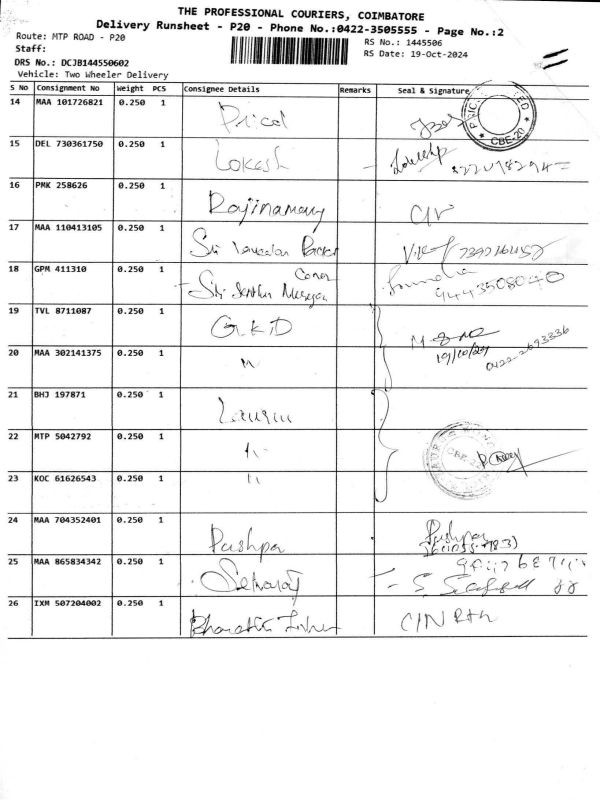 THE PROFESSIONAL COURIERS, COIMBATORE
Delivery Runsheet - P20 - Phone No.:0422-3505555 - Page No.:2
Route: MTP ROAD - P20
RS No.: 1445506
Staff:
RS Date: 19-Oct-2024
DRS No.: DCJB144550602
Vehicle: Two Wheeler Delivery
S No Consignment No Weight PCS Consignee Details Remarks Seal & Signature
14 MAA 101726821 0.250 1 Pricol
CBE-20
15 DEL 730361750 0.250 1 Lokesh
16 PMK 258626 0.250 1
17 MAA 110413105 0.250 1 Sri
18 GPM 411310 0.250 1
9443508040
19 TVL 8711087 0.250 1 GKD
19/10/24
0422-2693336
20 MAA 302141375 0.250 1 "
21 BHJ 197871 0.250 1
22 MTP 5042792 0.250 1 "
23 KOC 61626543 0.250 1 "
24 MAA 704352401 0.250 1 Pushpa Pushpa
25 MAA 865834342 0.250 1 Selvaraj
26 IXM 507204002 0.250 1